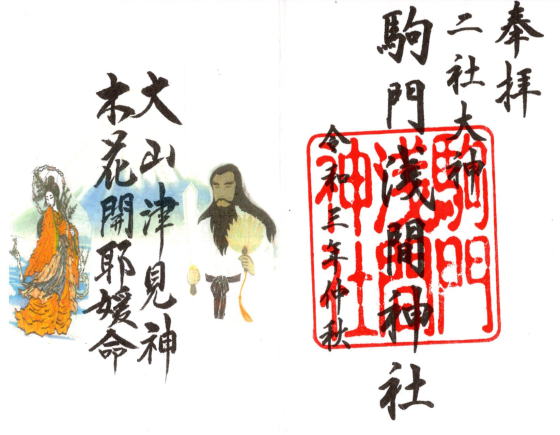 奉拝
二社大神
駒門浅間神社
令和三年仲秋
駒門
浅間
神社
大山津見神
木花開耶媛命